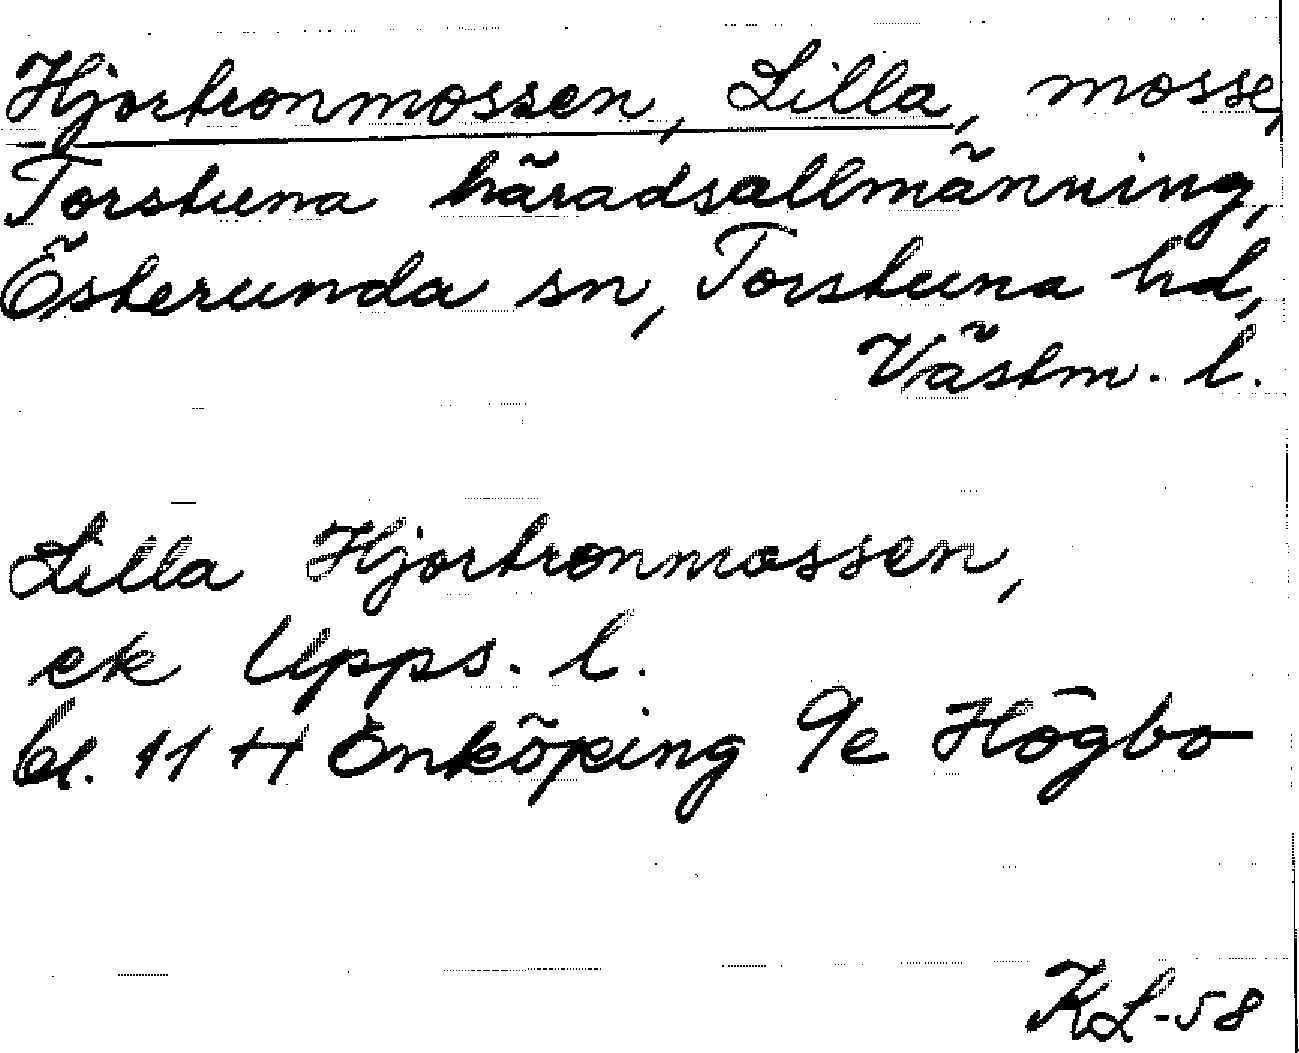 Hjortronmossen, Lilla, mosse,
Torstuna häradsallmänning,
Österunda sn, Torstuna hd,
Västm. l.
Lilla Hjortronmossen,
ek Upps. l.
bl. 11 H Enköping 9e Högbo
KL-58